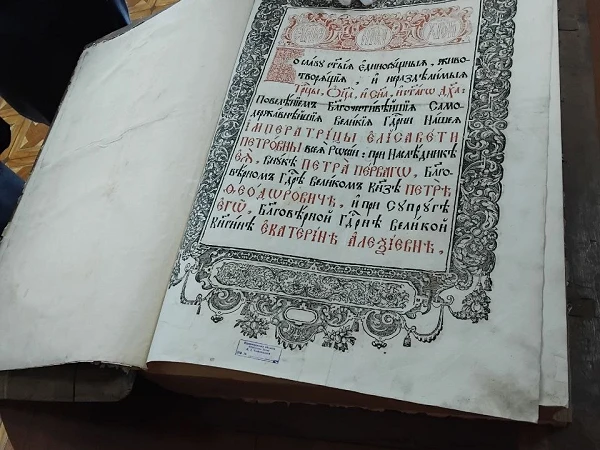 Во славу ст҃ыѧ единосꙋщныѧ, живо-
творѧщїѧ, и нераздѣлимыѧ
Трⷪ҇цы, Ѻ҆ц҃а̀, и Сн҃а, и ст҃агѡ Дх҃а:
Повелѣнїемъ Благочестивѣйшїѧ Само-
державнѣйшїѧ Великїѧ Гдⷭ҇рни Нашеѧ
ІМПЕРАТРІЦЫ ЕЛІСАВЕТИ
ПЕТРОВНЫ всеѧ Рѡссїи: при Наслѣдникѣ
еѧ, Внꙋкѣ ПЕТРА ПЕРВАГѠ, Благо-
вѣрномъ Гдⷭ҇рѣ Великомъ Кнѕѣ ПЕТРѢ
ѲЕОДѠРОВИЧѢ, и при Сꙋпрꙋгѣ
ЕГѠ, Благовѣрной Гдⷭ҇рнѣ Великой
Кнгинѣ ЕКАТЕРІНѢ АЛЕѮІЕВНѢ,